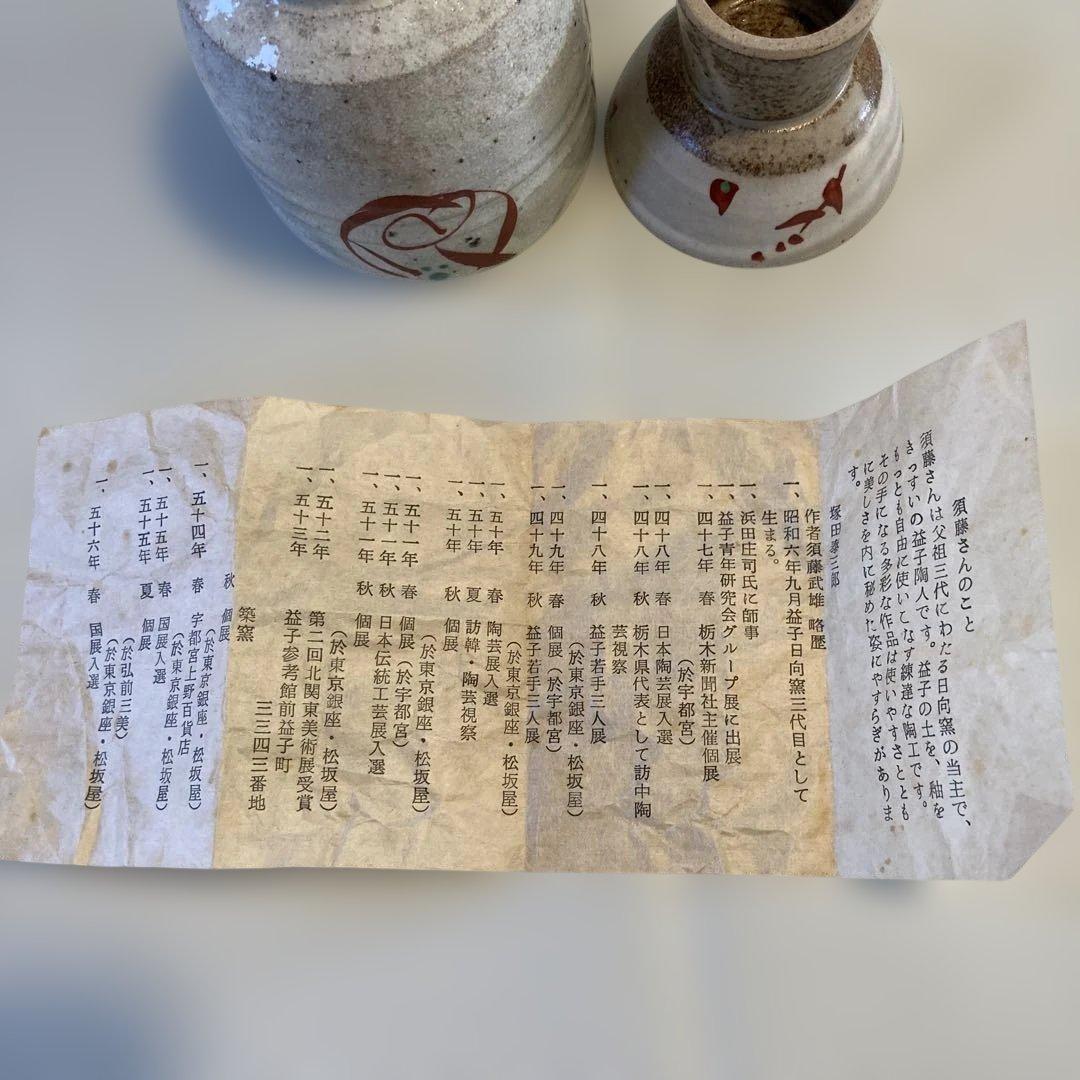 須藤さんのこと
須藤さんは父祖三代にわたる日向窯の当主で、
きっすいの益子陶人です。益子の土を、釉を
もっとも自由に使いこなす練達な陶工です。
その手になる多彩な作品は使いやすさととも
に美しさを内に秘めた姿にやすらぎがありま
す。
塚田泰三郎
作者須藤武雄 略歴
一、昭和六年九月益子日向窯三代目として
生まる。
一、浜田庄司氏に師事
一、益子青年研究会グループ展に出展
一、四十七年 春 栃木新聞社主催個展
(於宇都宮)
一、四十八年 春 日本陶芸展入選
一、四十八年 秋 栃木県代表として訪中陶
芸視察
一、四十八年 秋 益子若手三人展
(於東京銀座・松坂屋)
一、四十九年 春 個展(於宇都宮)
一、四十九年 秋 益子若手三人展
(於東京銀座・松坂屋)
一、五十年 春 陶芸展入選
一、五十年 夏 訪韓・陶芸視察
一、五十年 秋 個展
(於東京銀座・松坂屋)
一、五十一年 春 個展(於宇都宮)
一、五十一年 秋 日本伝統工芸展入選
一、五十一年 秋 個展
(於東京銀座・松坂屋)
一、五十二年 第二回北関東美術展受賞
一、五十三年 益子参考館前益子町
三三四三番地
築窯
秋 個展
(於東京銀座・松坂屋)
一、五十四年 春 宇都宮上野百貨店
(於東京銀座・松坂屋)
一、五十五年 春 国展入選
一、五十五年 夏 個展
(於弘前三美)
(於東京銀座・松坂屋)
一、五十六年 春 国展入選